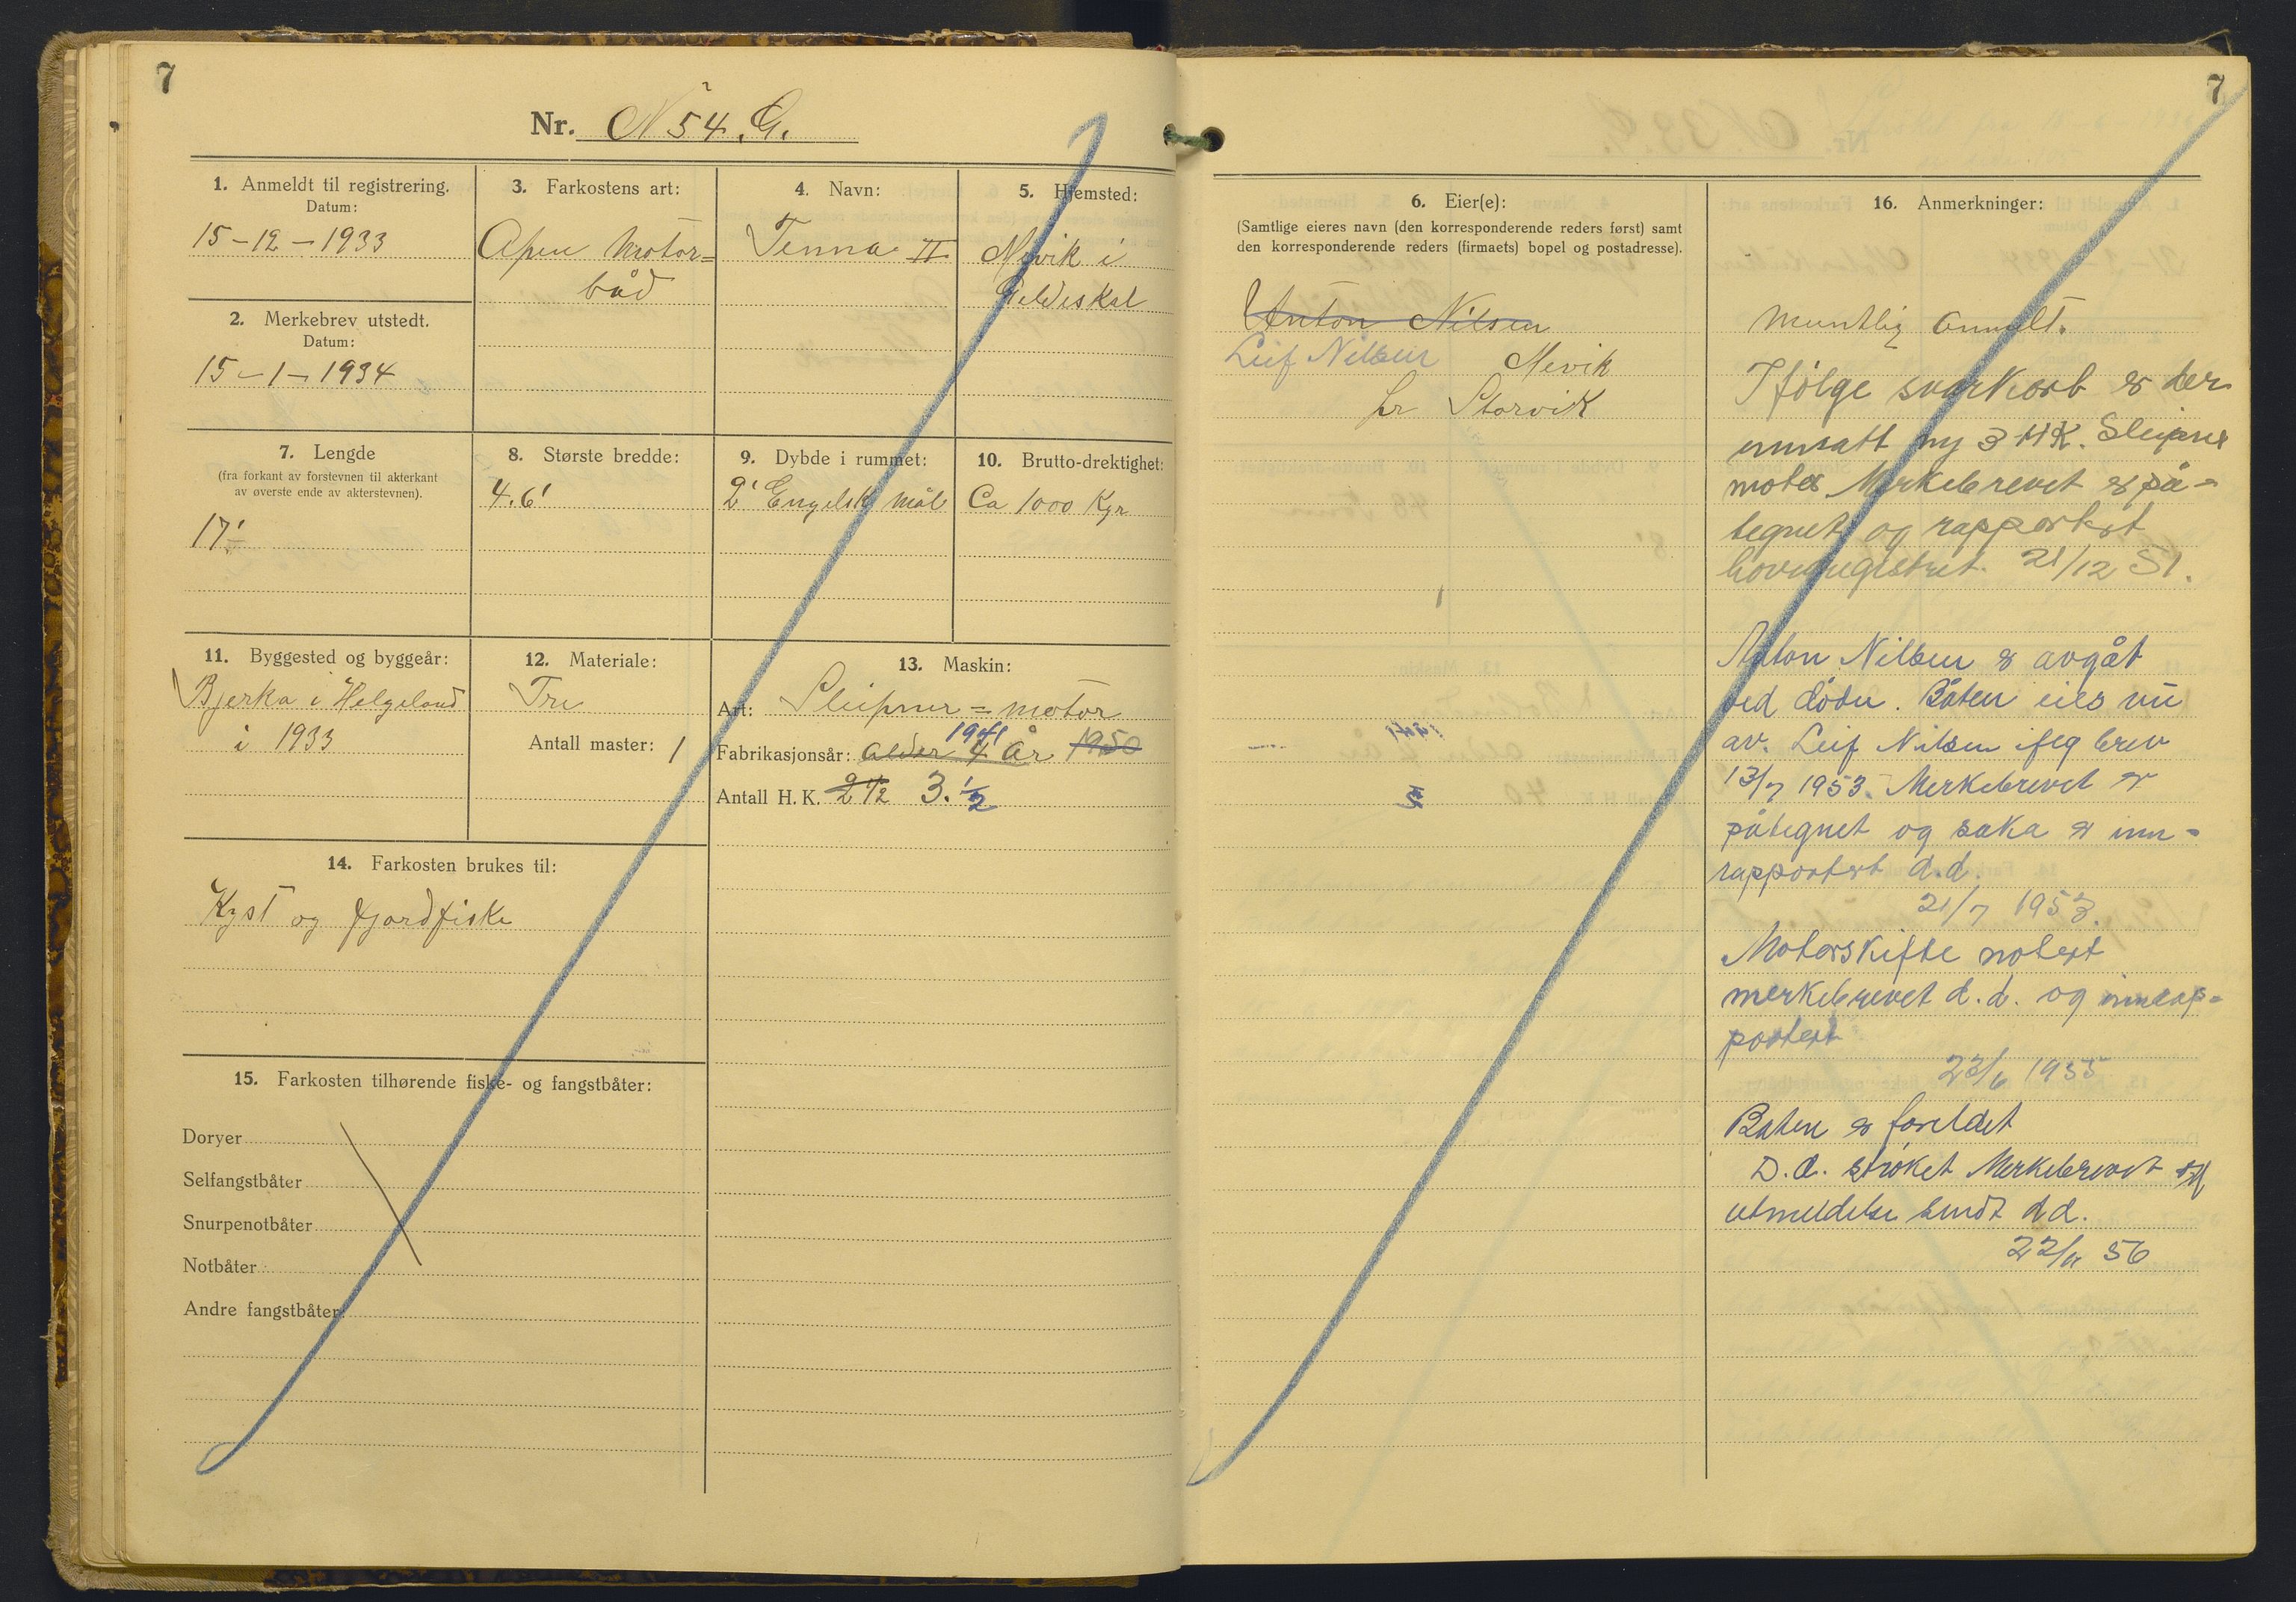 7
Nr. N 54. G.
1. Anmeldt til registrering.
Datum:
15-12-1933
2. Merkebrev utstedt.
Datum:
15-1-1934
3. Farkostens art:
Apen Motor=
båd
4. Navn:
Tenna II
5. Hjemsted:
Mevik i
Gildeskal
7. Lengde
(fra forkant av forstevnen til akterkant
av øverste ende av akterstevnen).
17'-
8. Største bredde:
4.6'
9. Dybde i rummet:
2' Engelsk mål
10. Brutto-drektighet:
Ca 1000 Kgr
11. Byggested og byggeår:
Bjerka i Helgeland
i 1933
12. Materiale:
Tre
Antall master: 1
13. Maskin:
Art: Sleipner = motor
1941
Fabrikasjonsår: alder 4 År 1950
Antall H. K. 2 1/2 3. 1/2
14. Farkosten brukes til:
Kyst og fjordfiske
15. Farkosten tilhørende fiske- og fangstbåter:
Doryer
Selfangstbåter
Snurpenotbåter
Notbåter
Andre fangstbåter
7
6. Eier(e):
(Samtlige eieres navn (den korresponderende reders først) samt
den korresponderende reders (firmaets) bopel og postadresse).
Anton Nilsen
Leif Nilsen Mevik
pr Storvik
16. Anmerkninger:
Muntlig anmelt.
Ifølge svarkort er der
innsatt ny 3 HK. Sleipner
motor Merkebrevet er på-
tegnet og rapportert
hovedregistret. 21/12 51.
Anton Nilsen er avgåt
ved døden. Båten eies nu
av. Leif Nilsen ifølg brev
13/7 1953. Merkebrevet er
påtegnet og saka er inn-
rapportert d.d.
21/7 1953.
Motorskifte notert
merkebrevet d.d. og innrap-
portert
23/6 1955
Båten er foreldet
D.d. strøket Merkebrevet
utmeldelse sendt d d.
22/11 56